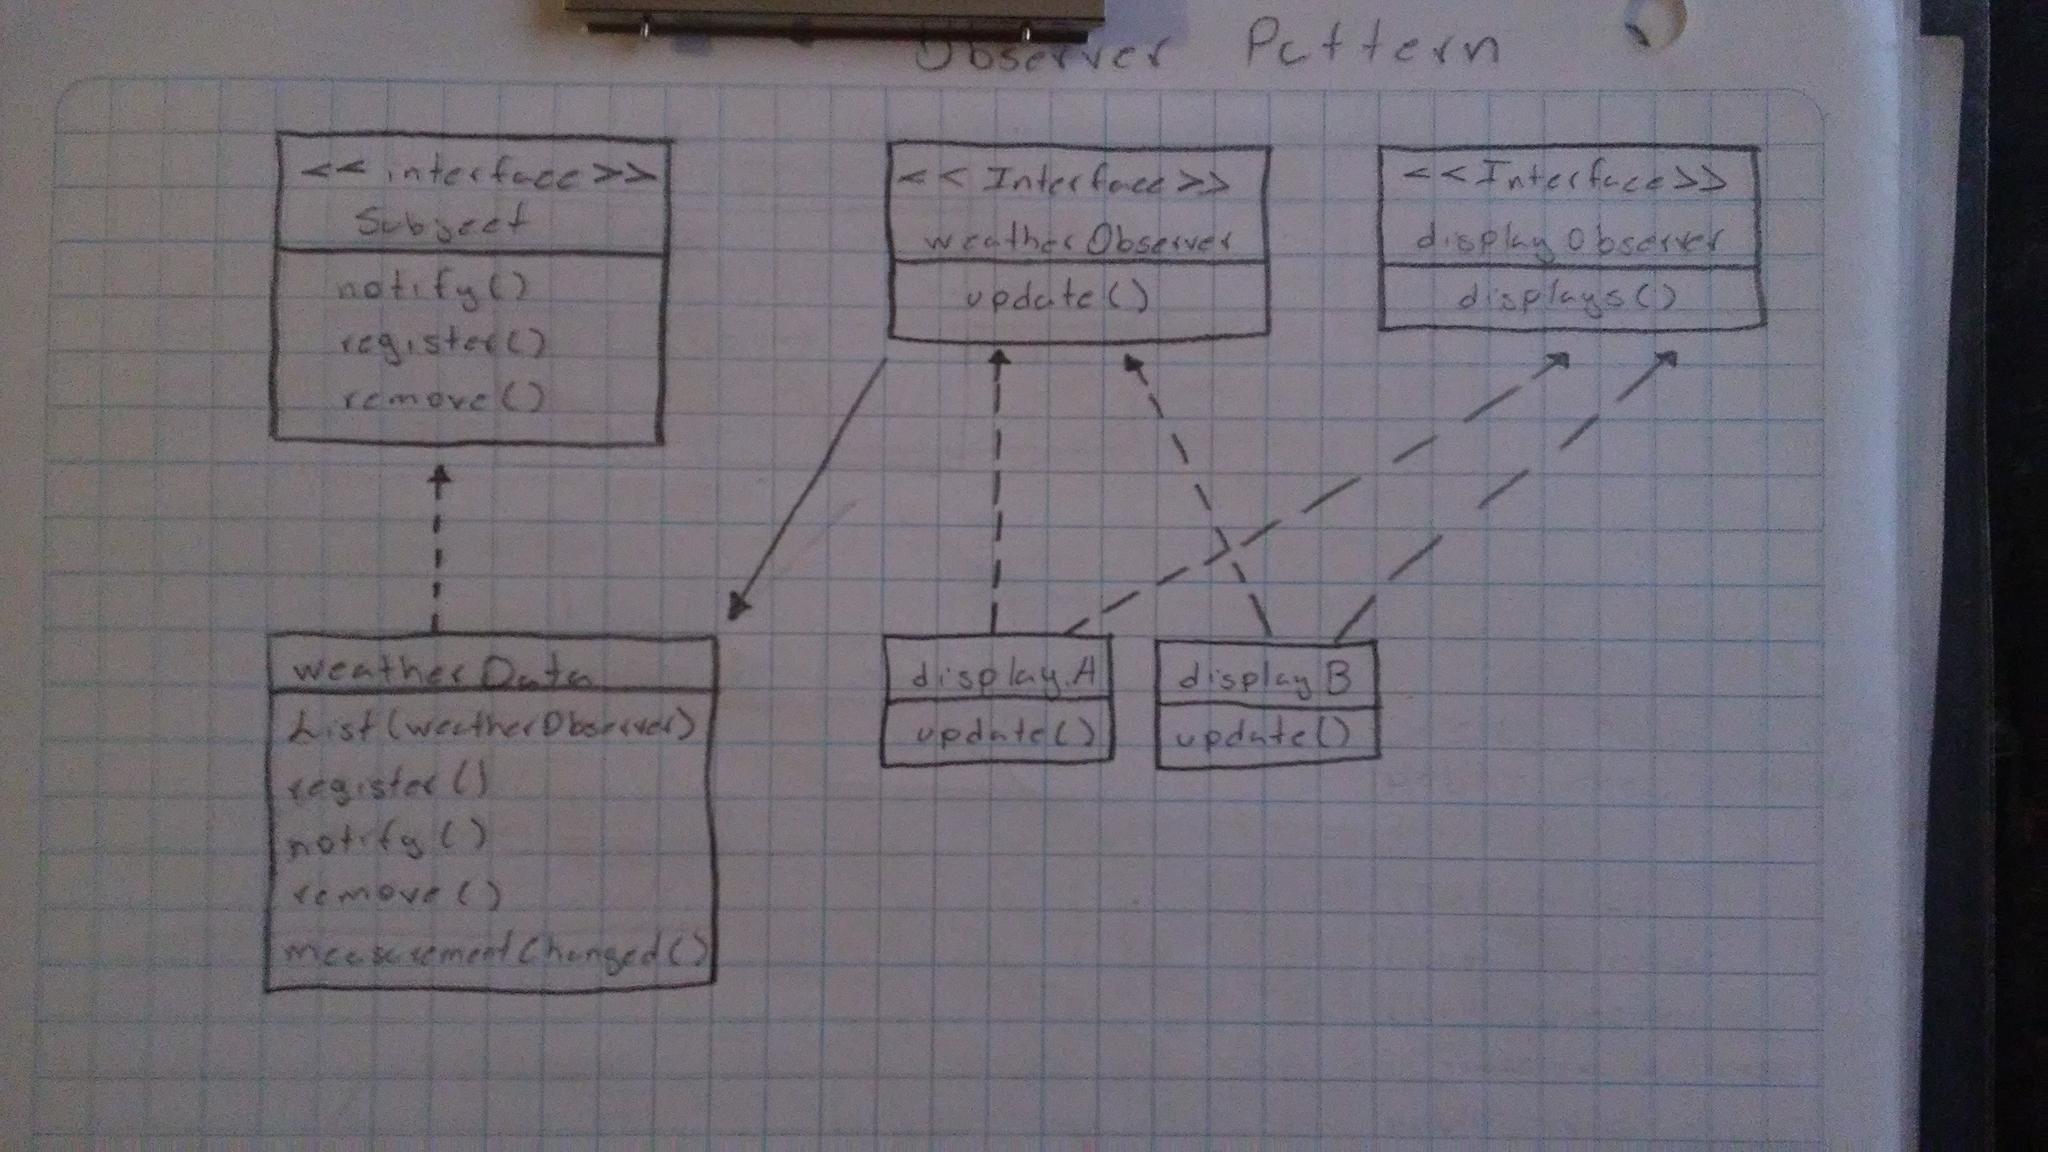 Observer Pattern
<< interface >>
Subject
notify()
register()
remove()
<< Interface >>
weatherObserver
update()
<< Interface >>
displayObserver
displays()
weatherData
List(weatherObserver)
register()
notify()
remove()
measurementChanged()
displayA
update()
displayB
update()